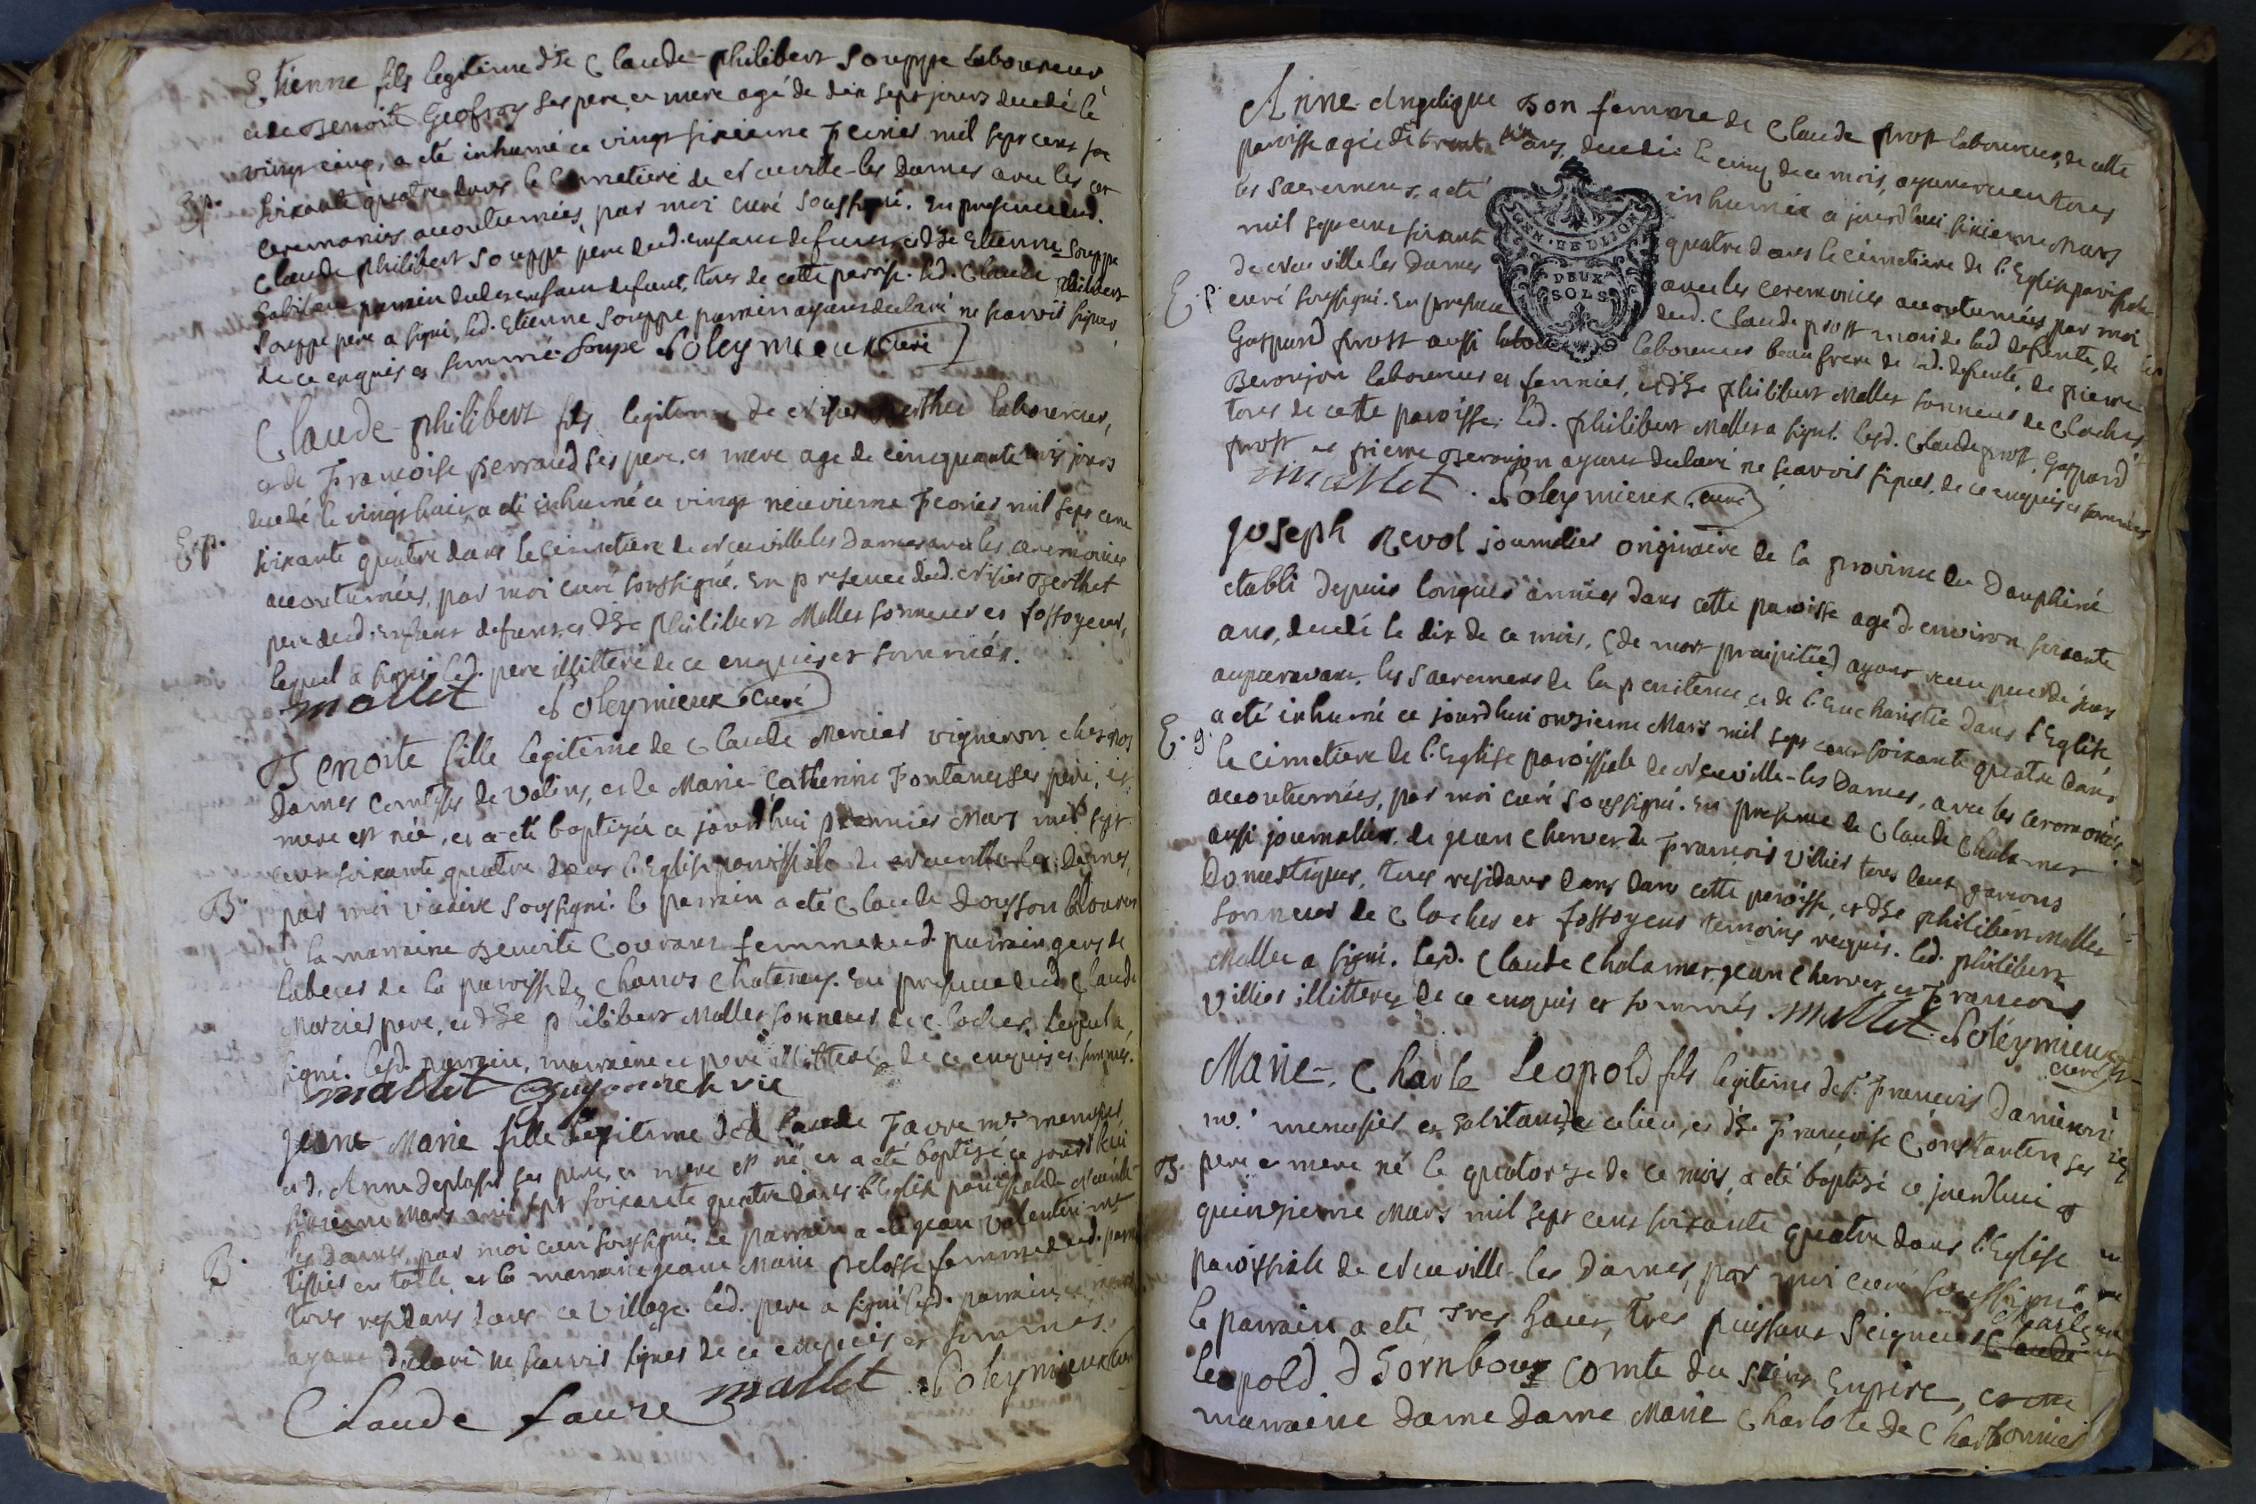 Etienne fils legitime d'he Claude-philibert Souppe laboureur
et de Benoite Geofray ses pere et mere agé de dix sept jours decedé le
vingt cinq, a eté inhumé ce vingt sixieme Fevrier mil sept cent soi
soixante quatre dans le cimetiere de Neuville-les Dames avec les cer
Ep.
ceremonies accoutumées, par moi curé soussigné. En presence dud.
Claude philibert Souppe pere dud. enfant defunt et d'he Etienne Souppe
habitant parrain dudit enfant defunt, tous de cette paroisse. led. Claude Philibert
Souppe pere a signé, led. Etienne Souppe parrain ayant declaré ne sçavoir signer,
de ce enquis et sommé. Soupe Noleymieux curé
Claude-philibert fils legitime de Berthet laboureur,
et de Francoise perraud ses pere et mere agé de cinquante trois jours
decedé le vingt huit, a eté inhumé ce vingt neuvieme Fevrier mil sept cent
Ep.
soixante quatre dans le cimetiere de Neuville les Dames avec les ceremonies
accoutumées, par moi curé soussigné. En presence dud. Berthet
pere dud. Enfant defunt et d'he philibert Mallet sonneur et fossoyeur,
lequel a signé led. pere illitteré de ce enquis et sommés.
mallet Noleymieux curé
Benoite fille legitime de Claude Mercier vigneron chés nos
Dames Comtesses de Valins, et de Marie-Catherine Fontanes ses pere, et
mere est née, et a eté baptizée ce jourd'hui premier Mars mil sept
cent soixante quatre dans l'Eglise paroissiale de Neuville les Dames,
B.
par moi vicaire soussigné. le parrain a eté Claude Dousson laboureur
la marraine Benoite Couvant femme dud. parrain gens de
labeur de la paroisse de Chanos Chatenay. En presence dud. Claude
Mercier pere, et d'he philibert Mallet sonneur de cloches. Lequel a
signé. lesd. parrain, marraine et pere illitterés de ce enquis et sommés.
mallet vic
Jeanne-Marie fille legitime de Claude Favre mre. menusier
et d. Anne deplasse ses pere et mere est né et a eté baptisé ce jourd'hui
sixieme Mars mil sept soixante quatre dans l'Eglise paroissiale de Neuville
les Dames, par moi curé soussigné. Le parrain a eté jean Valentin mre.
B.
tissier en toile, et la marraine jeanne Marie pelosse femme dud. parrain
tous residans dans ce village. Led. pere a signé lesd. parrain et marr
ayant declaré ne sçavoir signer de ce enquis et sommés.
Claude faure mallet Noleymieux curé
Anne-Angelique Bon femme de Claude prost laboureur, de cette
paroisse agée de trente six ans, decedée le cinq de ce mois, ayant receu tous
les sacremens, a eté inhumée ce jourd'hui sixieme Mars
mil sept cent soixante quatre dans le cimetiere de l'Eglise paroissiale
de Neuville les Dames avec les ceremonies accoutumées par moi
E. p.
curé soussigné. En presence dud. Claude prost mari de lad. defunte, de
GEN. DE DIJON
DEUX
SOLS
Gaspard prost aussi laboureur beau frere de lad. defunte, de pierre
Beroujon laboureur et fermier, et d'he philibert Mallet sonneur de cloches
tous de cette paroisse. Led. philibert Mallet a signé. Lesd. Claude prost, Gaspard
prost et pierre Beroujon ayant declaré ne sçavoir signer, de ce enquis et sommés
mallet. Noleymieux curé
Joseph Revol journalier originaire de la province du Dauphiné
etabli depuis longues années dans cette paroisse agé d'environ soixante
ans, decedé le dix de ce mois, (de mort precipitée) ayant receu peu de jours
auparavant les sacremens de la penitence, et de l'Eucharistie dans l'Eglise
a eté inhumé ce jourd'hui onzieme Mars mil sept cent soixante quatre dans
E. g.
le cimetiere de l'Eglise paroissiale de Neuville-les Dames, avec les ceremonies
accoutumées, par moi curé soussigné. En presence de Claude Chalamer
aussi journalier, de jean Cherver, de Francois Villier tous deux garcons
Domestiques, tous residans dans dans cette paroisse, et d'he philibert Mallet
sonneur de cloches et fossoyeur temoins requis. Led. philibert
Mallet a signé. Lesd. Claude Chalamer, jean Cherver, et Francois
Villier illitterez de ce enquis et sommés. mallet. Noleymieux
curé
Marie-Charle Leopold fils legitime de Sr. Francois Damien
mre. menusier et habitant de ce lieu, et d'he Francoise Constantin ses
B.
pere et mere né le quatorze de ce mois, a eté baptizé ce jourd'hui
quinzieme Mars mil sept cent soixante quatre dans l'Eglise
paroissiale de Neuville-les Dames, par moi curé soussigné
le parrain a eté Tres haut, tres puissant Seigneur Claude Charle
Leopold d'hornbourg comte du saint Empire, et ma
marraine dame dame Marie Charlote de Charbonnier